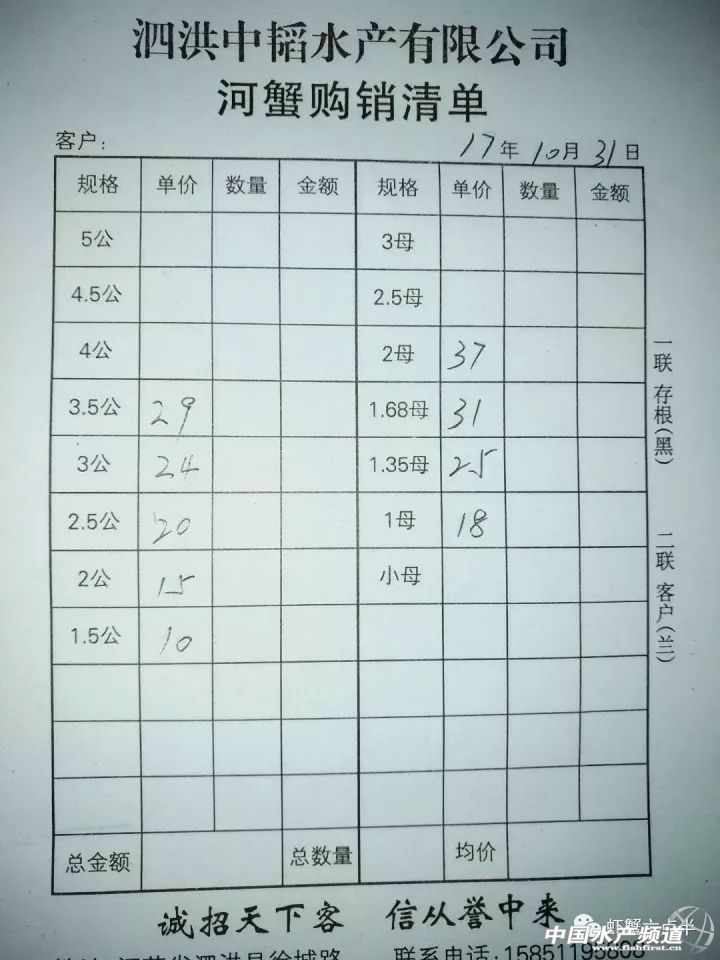 泗洪中韬水产有限公司
河蟹购销清单
客户: 17年10月31日
规格 单价 数量 金额 规格 单价 数量 金额
5公 3母
4.5公 2.5母
4公 2母 37
3.5公 29 1.68母 31
3公 24 1.35母 25
2.5公 20 1母 18
2公 15 小母
1.5公 10
总金额 总数量 均价
一联 存根(黑)
二联 客户(兰)
诚招天下客 信从誉中来
虾蟹六点半
中国水产频道
www.fishfirst.cn
江苏省泗洪县徐城路 联系电话:15851195808